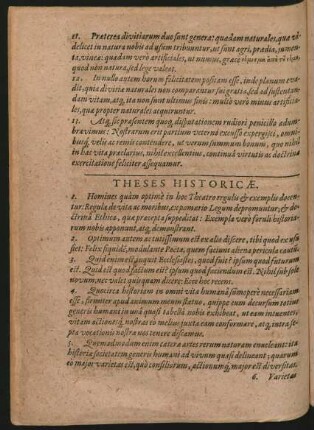 11. Præterea divitiarum duæ sunt genera: quædam naturales, quæ vi-
delicet in natura nobis ad usum tribuuntur, ut sunt agri, prædia, jumen-
ta, vinea: quædam verò artificiales, ut nummus, græcè
quod non natura, sed lege valeat.
12. In nullo autem harum felicitatem positam esse, inde planum eva-
dit, quia divitiæ naturales non comparantur sui gratia, sed ad sustentan-
dam vitam, atq; ita non sunt ultimus finis: multò verò minus artificia-
les, quæ propter naturales acquiruntur.
13. Atq; sic præsentem quoq; disputationem rudiori penicillo adum-
bravimus: Nostrarum erit partium veterno excusso expergisci, omni-
busq; velis ac remis contendere, ut verum summum bonum, quo nihil
in hac vita præclarius, nihil excellentius, continua virtutis ac doctrinæ
exercitatione feliciter assequamur.
THESES HISTORICÆ.
1. Homines quàm optimè in hoc Theatro regulis & exemplis docen-
tur: Regula de vita ac moribus, ex pomario Legum depromuntur, & do-
ctrina Ethica, quæ præcepta suppeditat: Exempla verò sorula historia-
rum nobis apponunt, atq; demonstrant.
2. Optimum autem ac tutissimum est ex alio discere, tibi quod ex usu
siet: Felix siquidem, modulante Poeta, quem faciunt aliena pericula cautum.
3. Quid enim est, inquit Ecclesiastes, quod fuit? ipsum quod futurum
est. Quid est quod factum est? ipsum quod faciendum est. Nihil sub sole
novum, nec valet quisquam dicere: Ecce hoc recens.
4. Quocirca historiam in omni vita humana summoperè necessariam
esse, firmiter apud animum meum statuo, quippe cum decursum totius
generis humani in una quasi tabella nobis exhibeat, ut eam intuentes
vitam actionesq; nostras eò melius juxta eam conformare, atq; intra se-
pta vocationis nostra nos tenere discamus.
5. Quemadmodum enim cætera artes rerum naturam enucleant: ita
historia societatem generis humani ad vivum quasi delineant; quarum
eò major varietas est, quò consiliorum, actionumq; major est diversitas.
6. Varietas